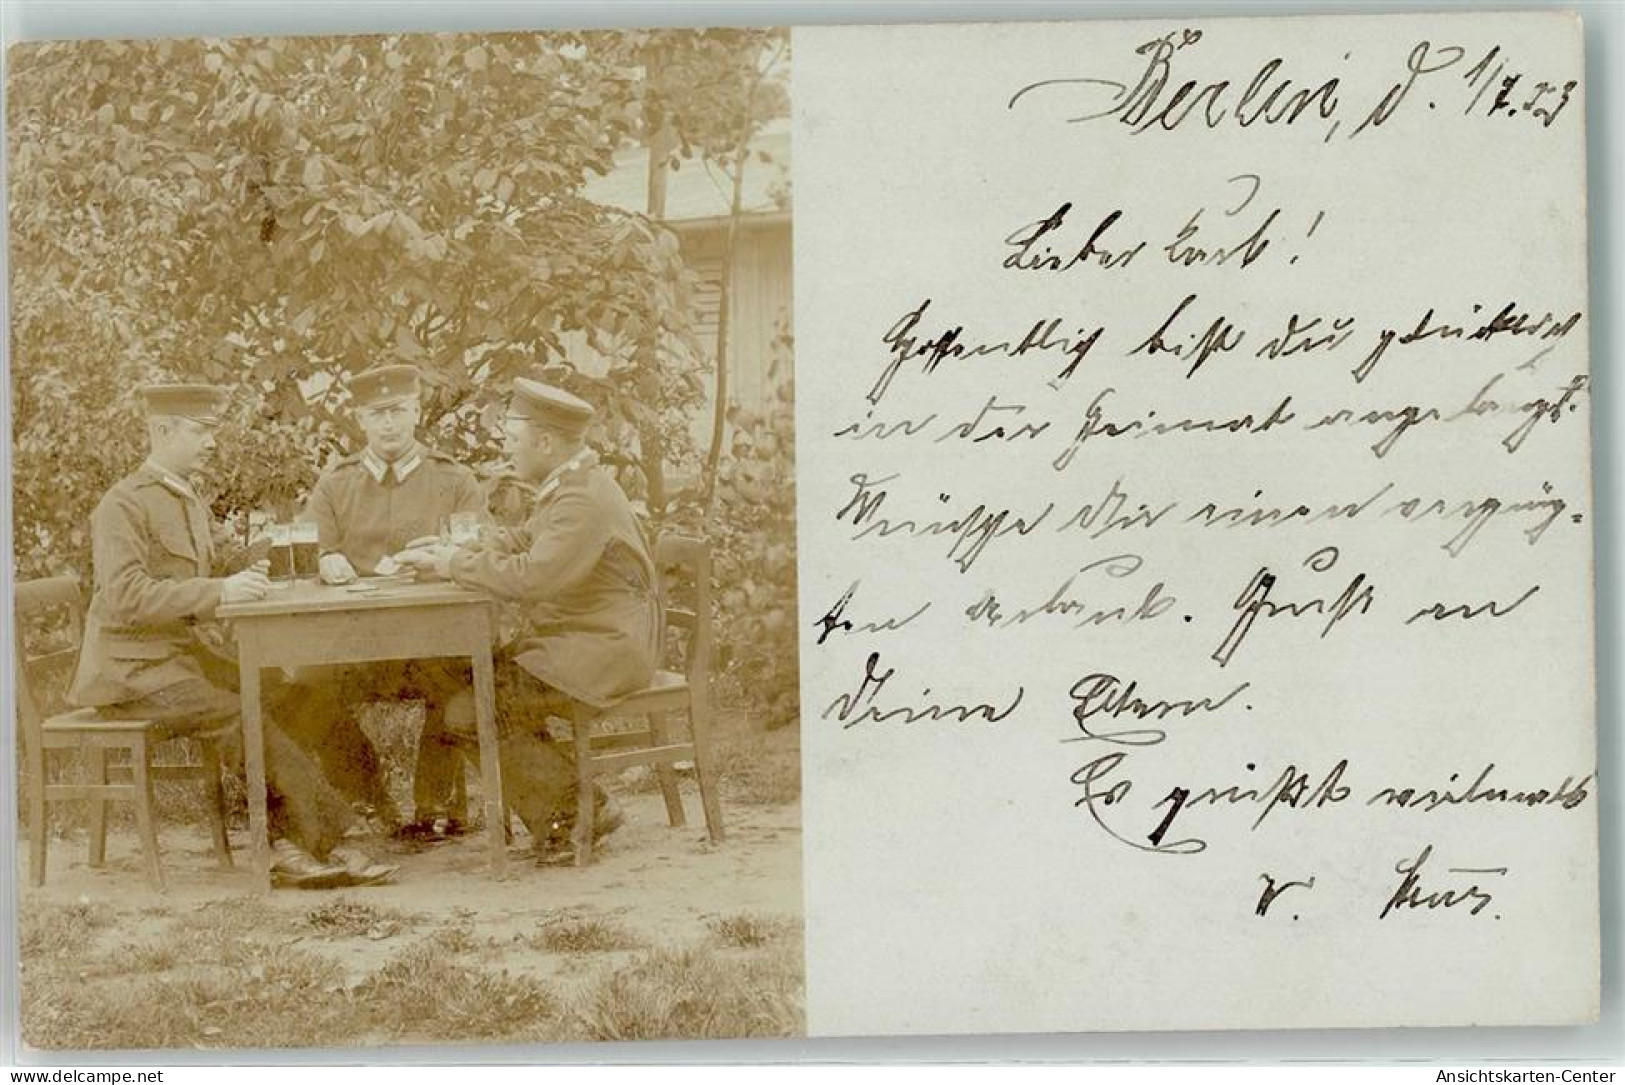 Berlin, d. 1/7. 03
Lieber Karl!
Hoffentlich bist Du glücklich
in der Heimat angelangt.
Wünsche Dir einen vergnüg-
ten Urlaub. Gruß an
Deine Eltern.
Es grüßt vielmals
W.
Ansichtskarten-Center